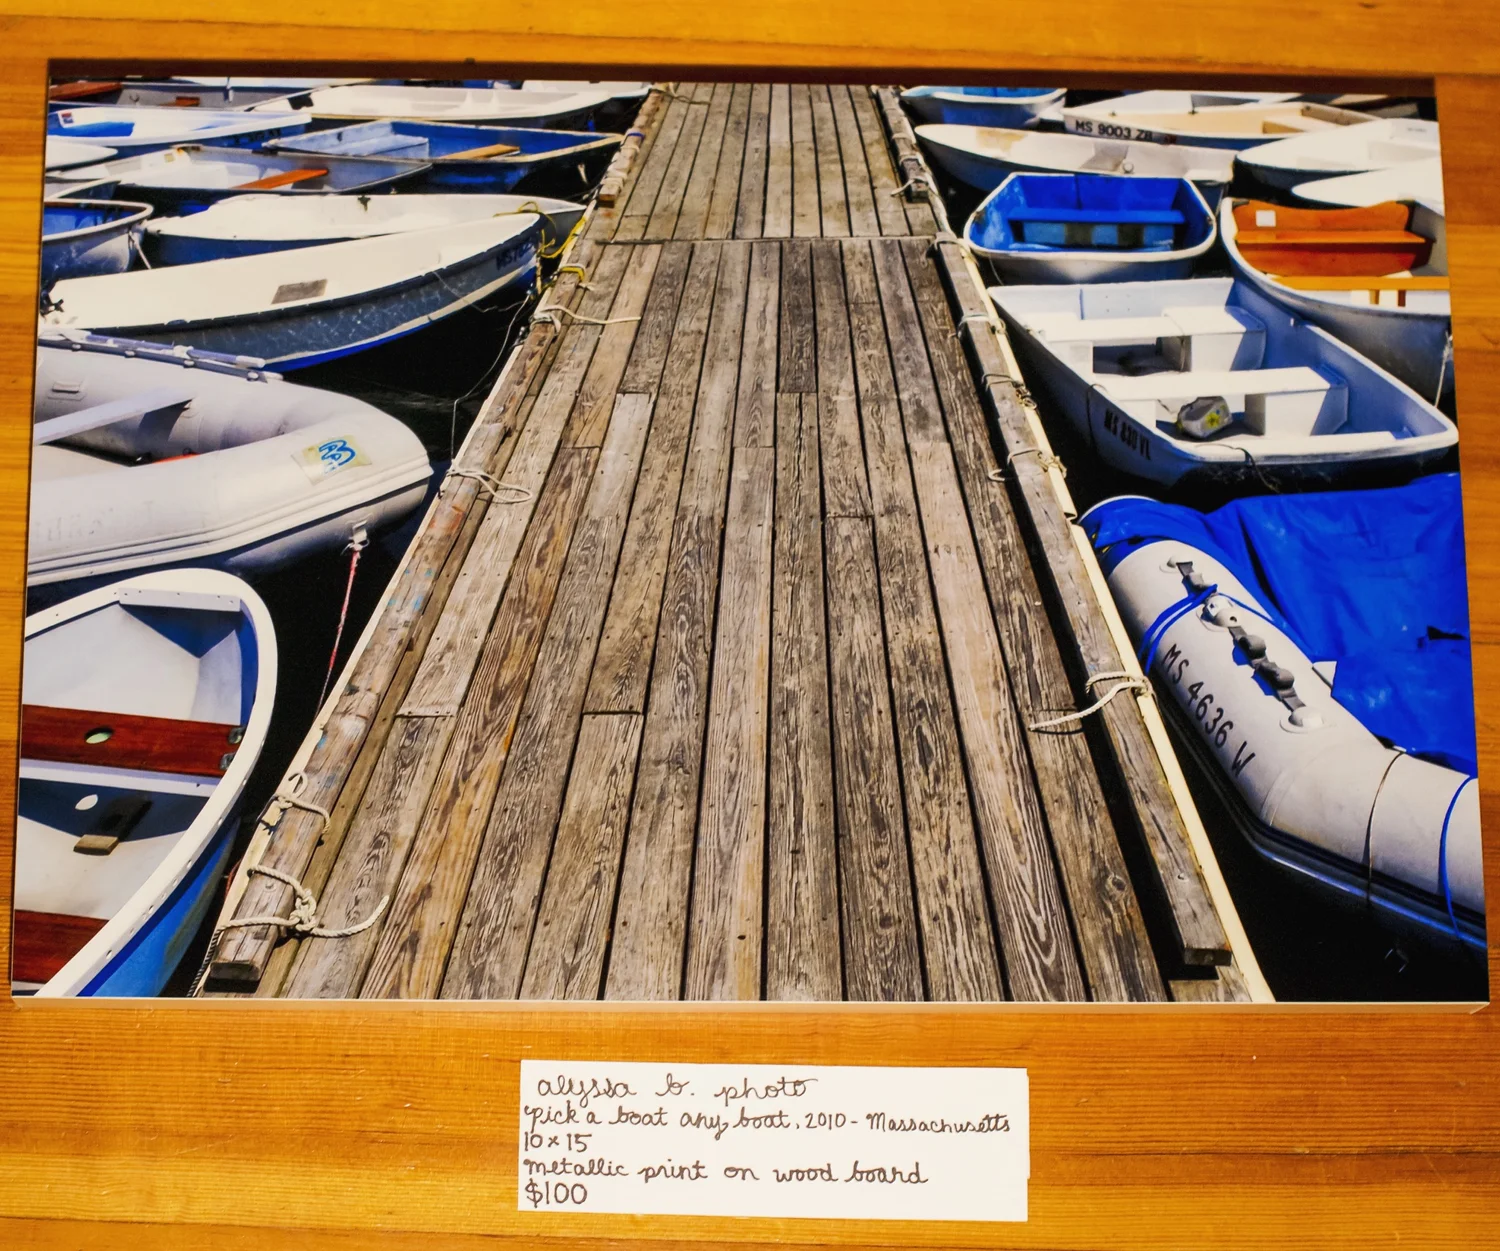 MS 9003 ZB
MS 4636 W
alyssa b. photo
pick a boat any boat, 2010 - Massachusetts
10 x 15
metallic print on wood board
$100